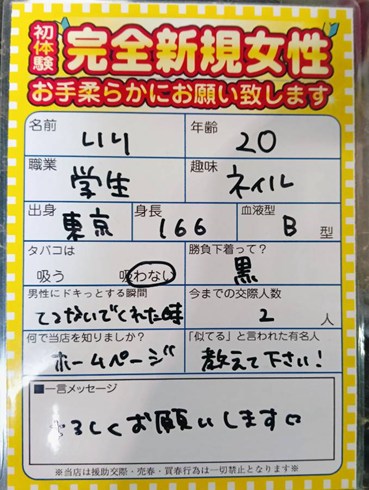 初体験 完全新規女性
お手柔らかにお願い致します
名前 りり 年齢 20
職業 学生 趣味 ネイル
出身 東京 身長 166 血液型 B 型
タバコは 吸う 吸わない 勝負下着って? 黒
男性にドキっとする瞬間 てつないでくれた時 今までの交際人数 2 人
何で当店を知りましたか? ホームページ 「似てる」と言われた有名人 教えて下さい!
■一言メッセージ
よろしくお願いします
※当店は援助交際・売春・買春行為は一切禁止となります※